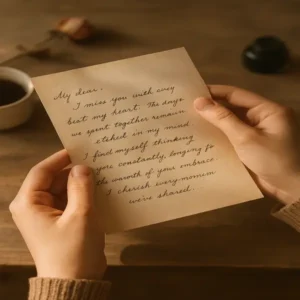 My dear,
I miss you with evey
beat my heart. The days
we spent together remain
etched in my mind
I find myself thinking
you constantly, longing fo
the warmth of your embrace.
I cherish every momen
we've shared.